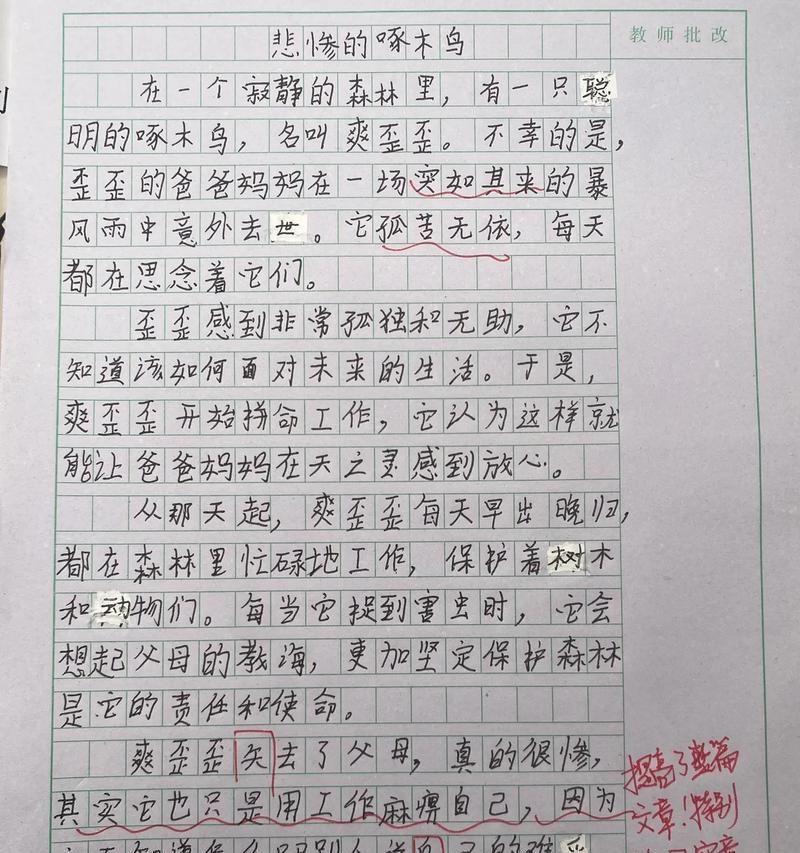 教师批改
悲惨的啄木鸟
在一个寂静的森林里，有一只聪
明的啄木鸟，名叫爽歪歪。不幸的是，
歪歪的爸爸妈妈在一场突如其来的暴
风雨中意外去世。它孤苦无依，每天
都在思念着它们。
歪歪感到非常孤独和无助，它不
知道该如何面对未来的生活。于是，
爽歪歪开始拼命工作，它认为这样就
能让爸爸妈妈在天之灵感到放心。
从那天起，爽歪歪每天早出晚归，
都在森林里忙碌地工作，保护着树木
和动物们。每当它捉到害虫时，它会
想起父母的教海，更加坚定保护森林
是它的责任和使命。
爽歪歪矢去了父母，真的很惨，
其实它也只是用工作麻痹自己，因为
提高了整篇
文章！特别